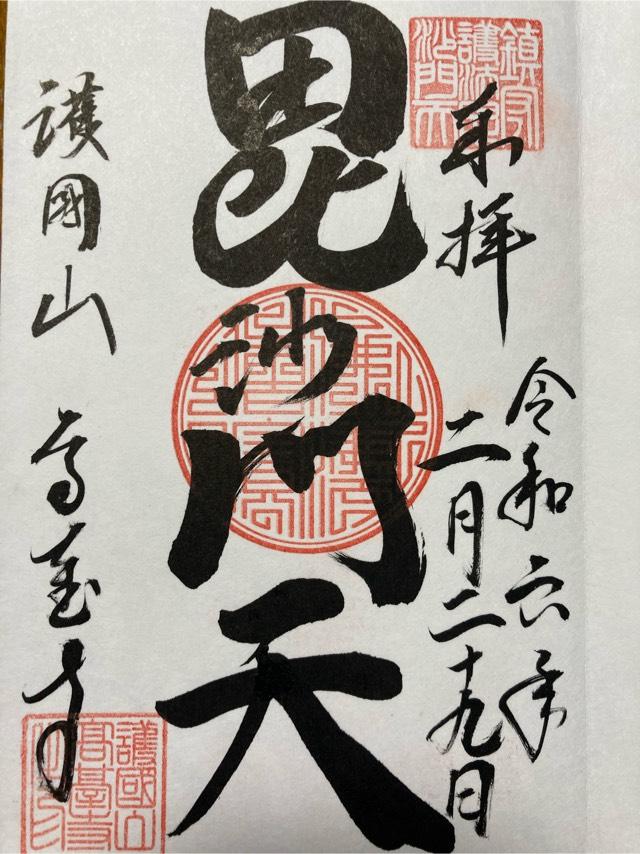 鎮守
護法
沙門天
奉拝
令和六年
二月二十九日
毘沙門天
護國山
高臺寺
護國山
高臺寺